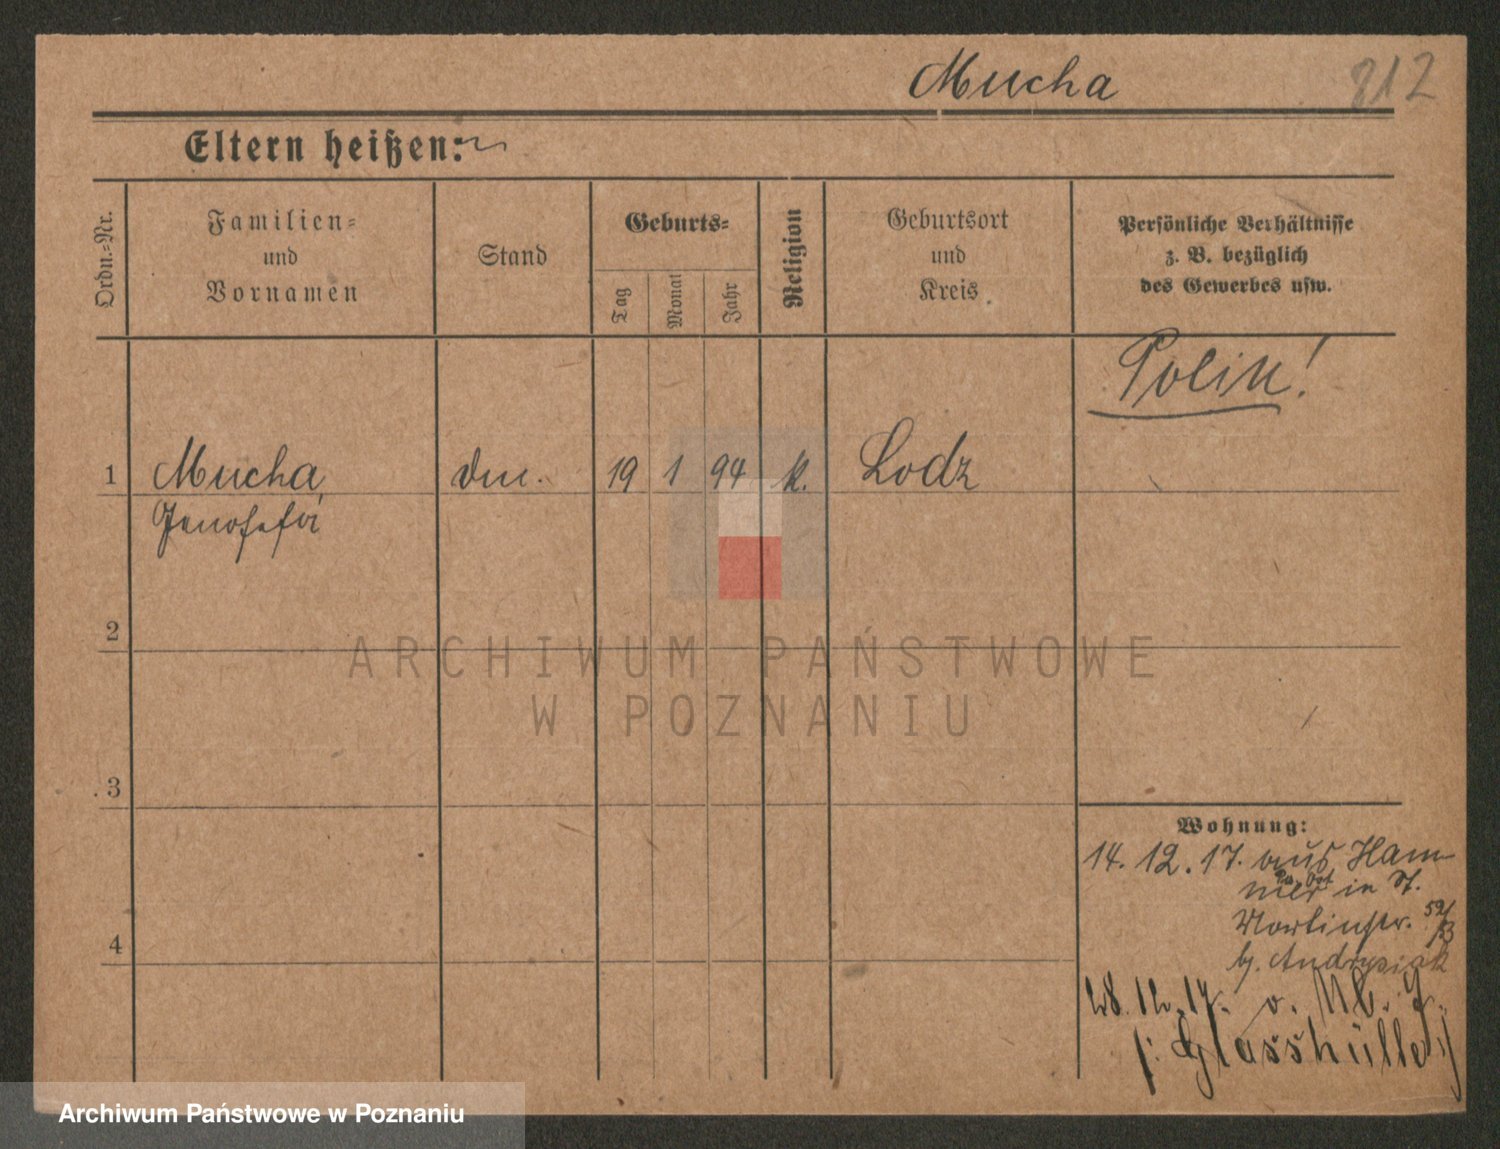 Mucha 212
Eltern heißen:
Ordn.-Nr.
Familien-
und
Vornamen
Stand
Geburts-
Tag
Monat
Jahr
Religion
Geburtsort
und
Kreis
Persönliche Verhältnisse
z. B. bezüglich
des Gewerbes usw.
Polin!
1 Mucha 19 1 94 k. Lodz
Genofefa
2
3
4
Wohnung:
14. 12. 17. aus Ham-
mer in St.
Martinstr. 52/
b. Andrysiak
28. 12. 17.
Glasshütte
ARCHIWUM PAŃSTWOWE
W POZNANIU
Archiwum Państwowe w Poznaniu